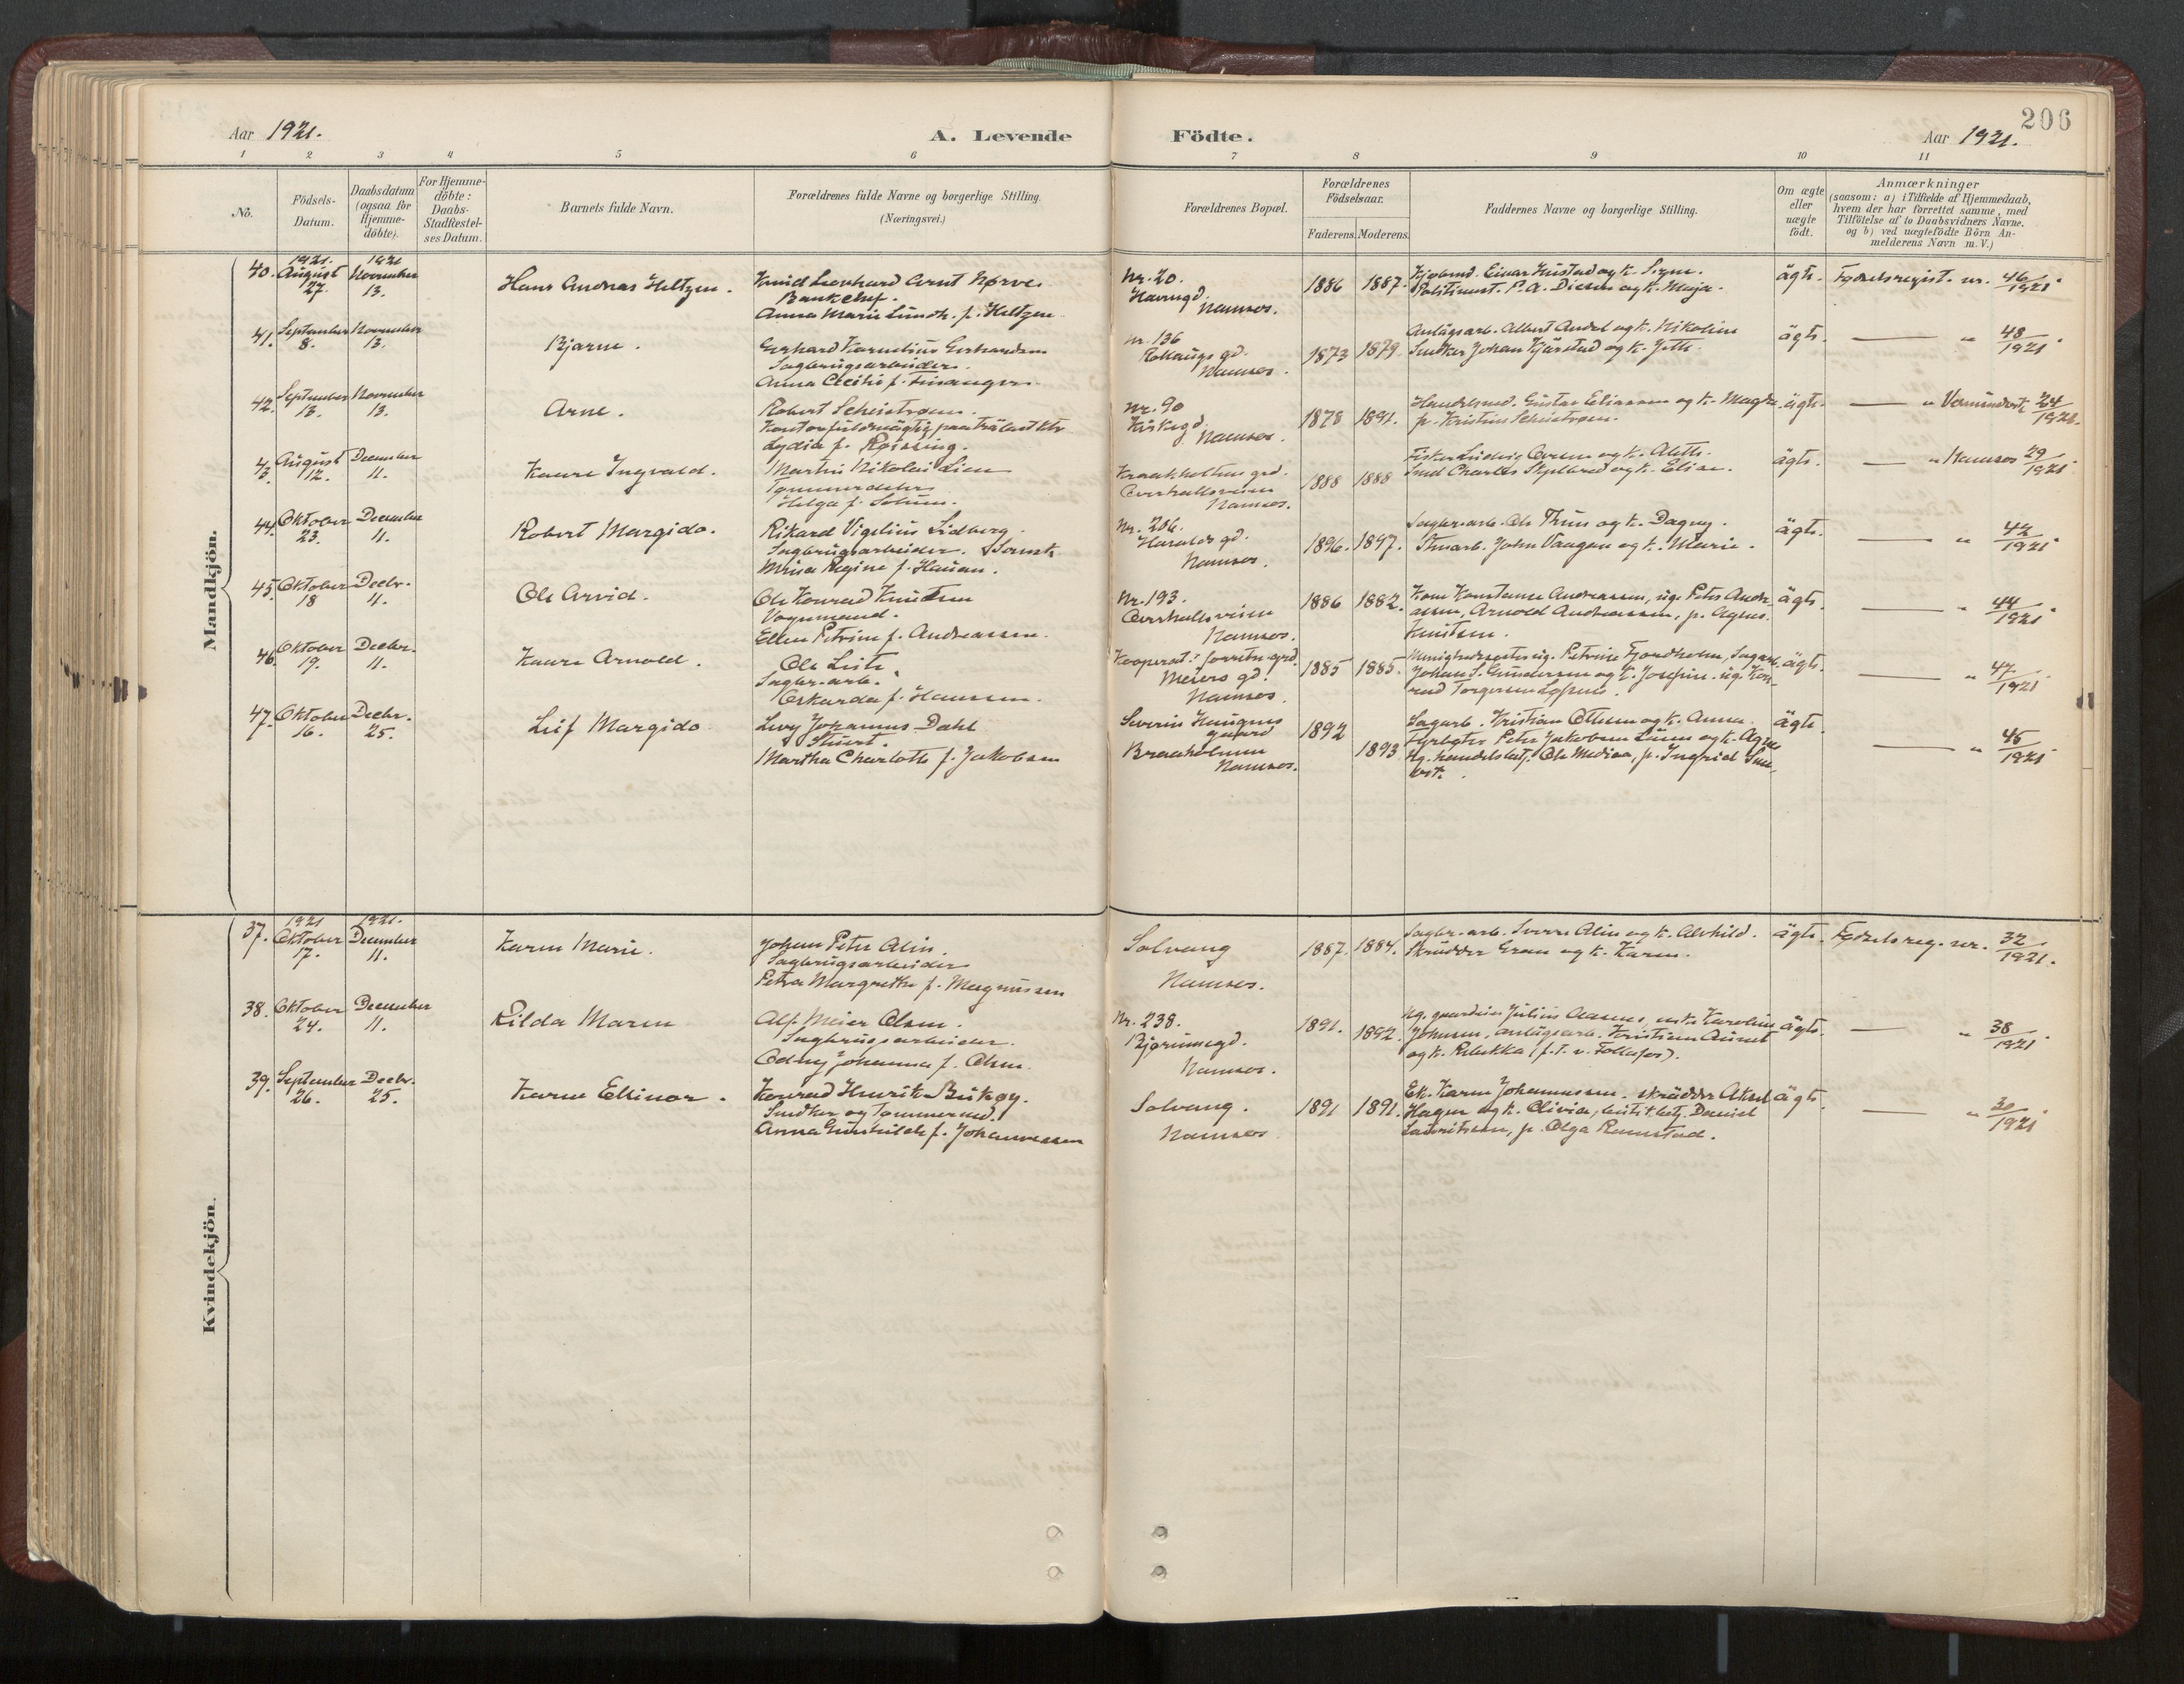 206
Aar 1921.
A. Levende Födte.
Aar 1921.
1 2 3 4 5 6 7 8 9 10 11
No.
Födsels-
Datum.
Daabsdatum
(ogsaa for
Hjemme-
döbte).
For Hjemme-
döbte:
Daabs-
Stadfæstel-
ses Datum.
Barnets fulde Navn.
Forældrenes fulde Navne og borgerlige Stilling.
(Næringsvei.)
Forældrenes Bopæl.
Forældrenes
Födselsaar.
Faderens. Moderens.
Faddernes Navne og borgerlige Stilling.
Om ægte
eller
uægte
födt.
Anmærkninger
(saasom: a) i Tilfælde af Hjemmedaab,
hvem der har forrettet samme, med
Tilföielse af to Daabsvidners Navne,
og b) ved uægtefödte Börn An-
melderens Navn m. V.)
Mandkjön.
40.
1921.
August
27.
1921
November
13.
Hans Andreas Heltzen.
Knud Leonhard Arnt Nørve.
Bankchef.
Anna Marie Lundh. f. Heltzen
Nr. 20.
Havnegd.
Namsos.
1886 1887.
Kjøbmd. Einar Hustad og k. Signe.
Politimest. P. A. Diesen og k. Maja.
ägte.
Fødselsregist. nr. 46/1921.
41.
September
8.
November
13.
Bjarne.
Gerhard Kornelius Gerhardsen
Sagbrugsarbeider.
Anna Cecilie f. Finanger.
Nr. 136
Rolaugs gd.
Namsos.
1873 1879.
Anlägsarb. Albert Andal og k. Nikoline
Snedker Johan Kjärstad og k. Jette.
ägte.
— " 48/1921.
42.
September
13.
November
13.
Arne.
Robert Scheistrøen.
Lydia f. Røissing.
Nr. 90
Kirkegd.
Namsos.
1878 1891.
Handelsmd. Gustav Eliassen og k. Magda
p. Kristine Scheistrøen.
ägte.
— " 24/1921.
43.
August
12.
December
11.
Kaare Ingvald.
Martin Nikolai Lien
Helga f. Solum.
Overhallsveien
Namsos.
1888 1888
Smed Charles Skjelbred og k. Elise.
ägte.
— " Namsos 29/1921.
44.
Oktober
23.
December
11.
Robert Margido.
Rikard Vigelius Lidberg.
Sagbrugsarbeider.
Regine f. Hauan.
Nr. 206.
Haralds gd.
Namsos.
1896. 1897.
Sagbr.-arb. Ole Thun og k. Dagny.
Stuearb. John Vaagan og k. Marie.
ägte.
— " 42/1921
45.
Oktober
18
Decbr.
11.
Ole Arvid.
Ole Konrad Knutsen
Vognmand.
Ellen Petrine f. Andreassen.
Nr. 193.
Overhallsveien
Namsos.
1886 1882.
Kone Konstanse Andreassen, ug. Peter Andre-
assen, Arnold Andreassen, p. Agnes
Knutsen.
ägte.
— " 44/1921.
46.
Oktober
19.
Decbr.
11.
Kaare Arnold.
Ole Leite.
Sagbr.-arb.
Oskarda f. Hanssen.
Meiers gd.
Namsos.
1885 1885.
Menighedssøster Petrine Fjordholm, Sagarb.
Johan S. Gundersen og k. Josefine. ug. Kon-
rad Torgersen
ägte.
— " 47/1921
47.
Oktober
16.
Decbr.
25.
Leif Margido
Levy Johannes Dahl
Stuert.
Martha Charlotte f. Jakobsen
Severin Haugnes
gaard
Braaholmen
Namsos.
1892
1893
Sagarb. Kristian Ottesen og k. Anna.
Fyrbøter Peter Jakobsen Luun og k. Agnes
Ug. handelsbetj. Ole Mediaa, p. Ingrid
ägte.
— " 45/1921
Kvindekjön.
37.
1921
Oktober
17.
1921.
December
11.
Karen Marie.
Johan Peter Alin
Sagbrugsarbeider
Petra Margrethe f. Magnussen
Solvang
Namsos.
1887. 1884.
Sagbr.-arb. Sverre Alin og k. Alvhild.
Skrädder Gran og k. Karen.
ägte.
Fødselsreg. nr. 32/1921.
38.
Oktober
24.
December
11.
Kilda Maren
Alf Meier Olsen.
Sagbrugsarbeider.
Odny Johanna f. Olsen.
Nr. 238.
Bjørumsgd.
Namsos.
1891. 1892.
Ug. gaardeier Julius Aasnes, Karoline
Johnsen, anlägsarb. Kristian Aunet
og k. Rebekka (f. T. v. Follafos).
ägte.
— " 38/1921
39.
September
26.
Decbr.
25.
Karen Ellinor.
Konrad Henrik Buköy.
Snedker og Tømmermd.
Anna Gunhilde f. Johannessen
Solvang.
Namsos.
1891 1891.
Ek. Karen Johannessen. skrädder Aksel
Hagen og k. Olivia, butikbetj. Daniel
Lauritsen, p. Olga Ramstad.
ägte.
— " 30/1921